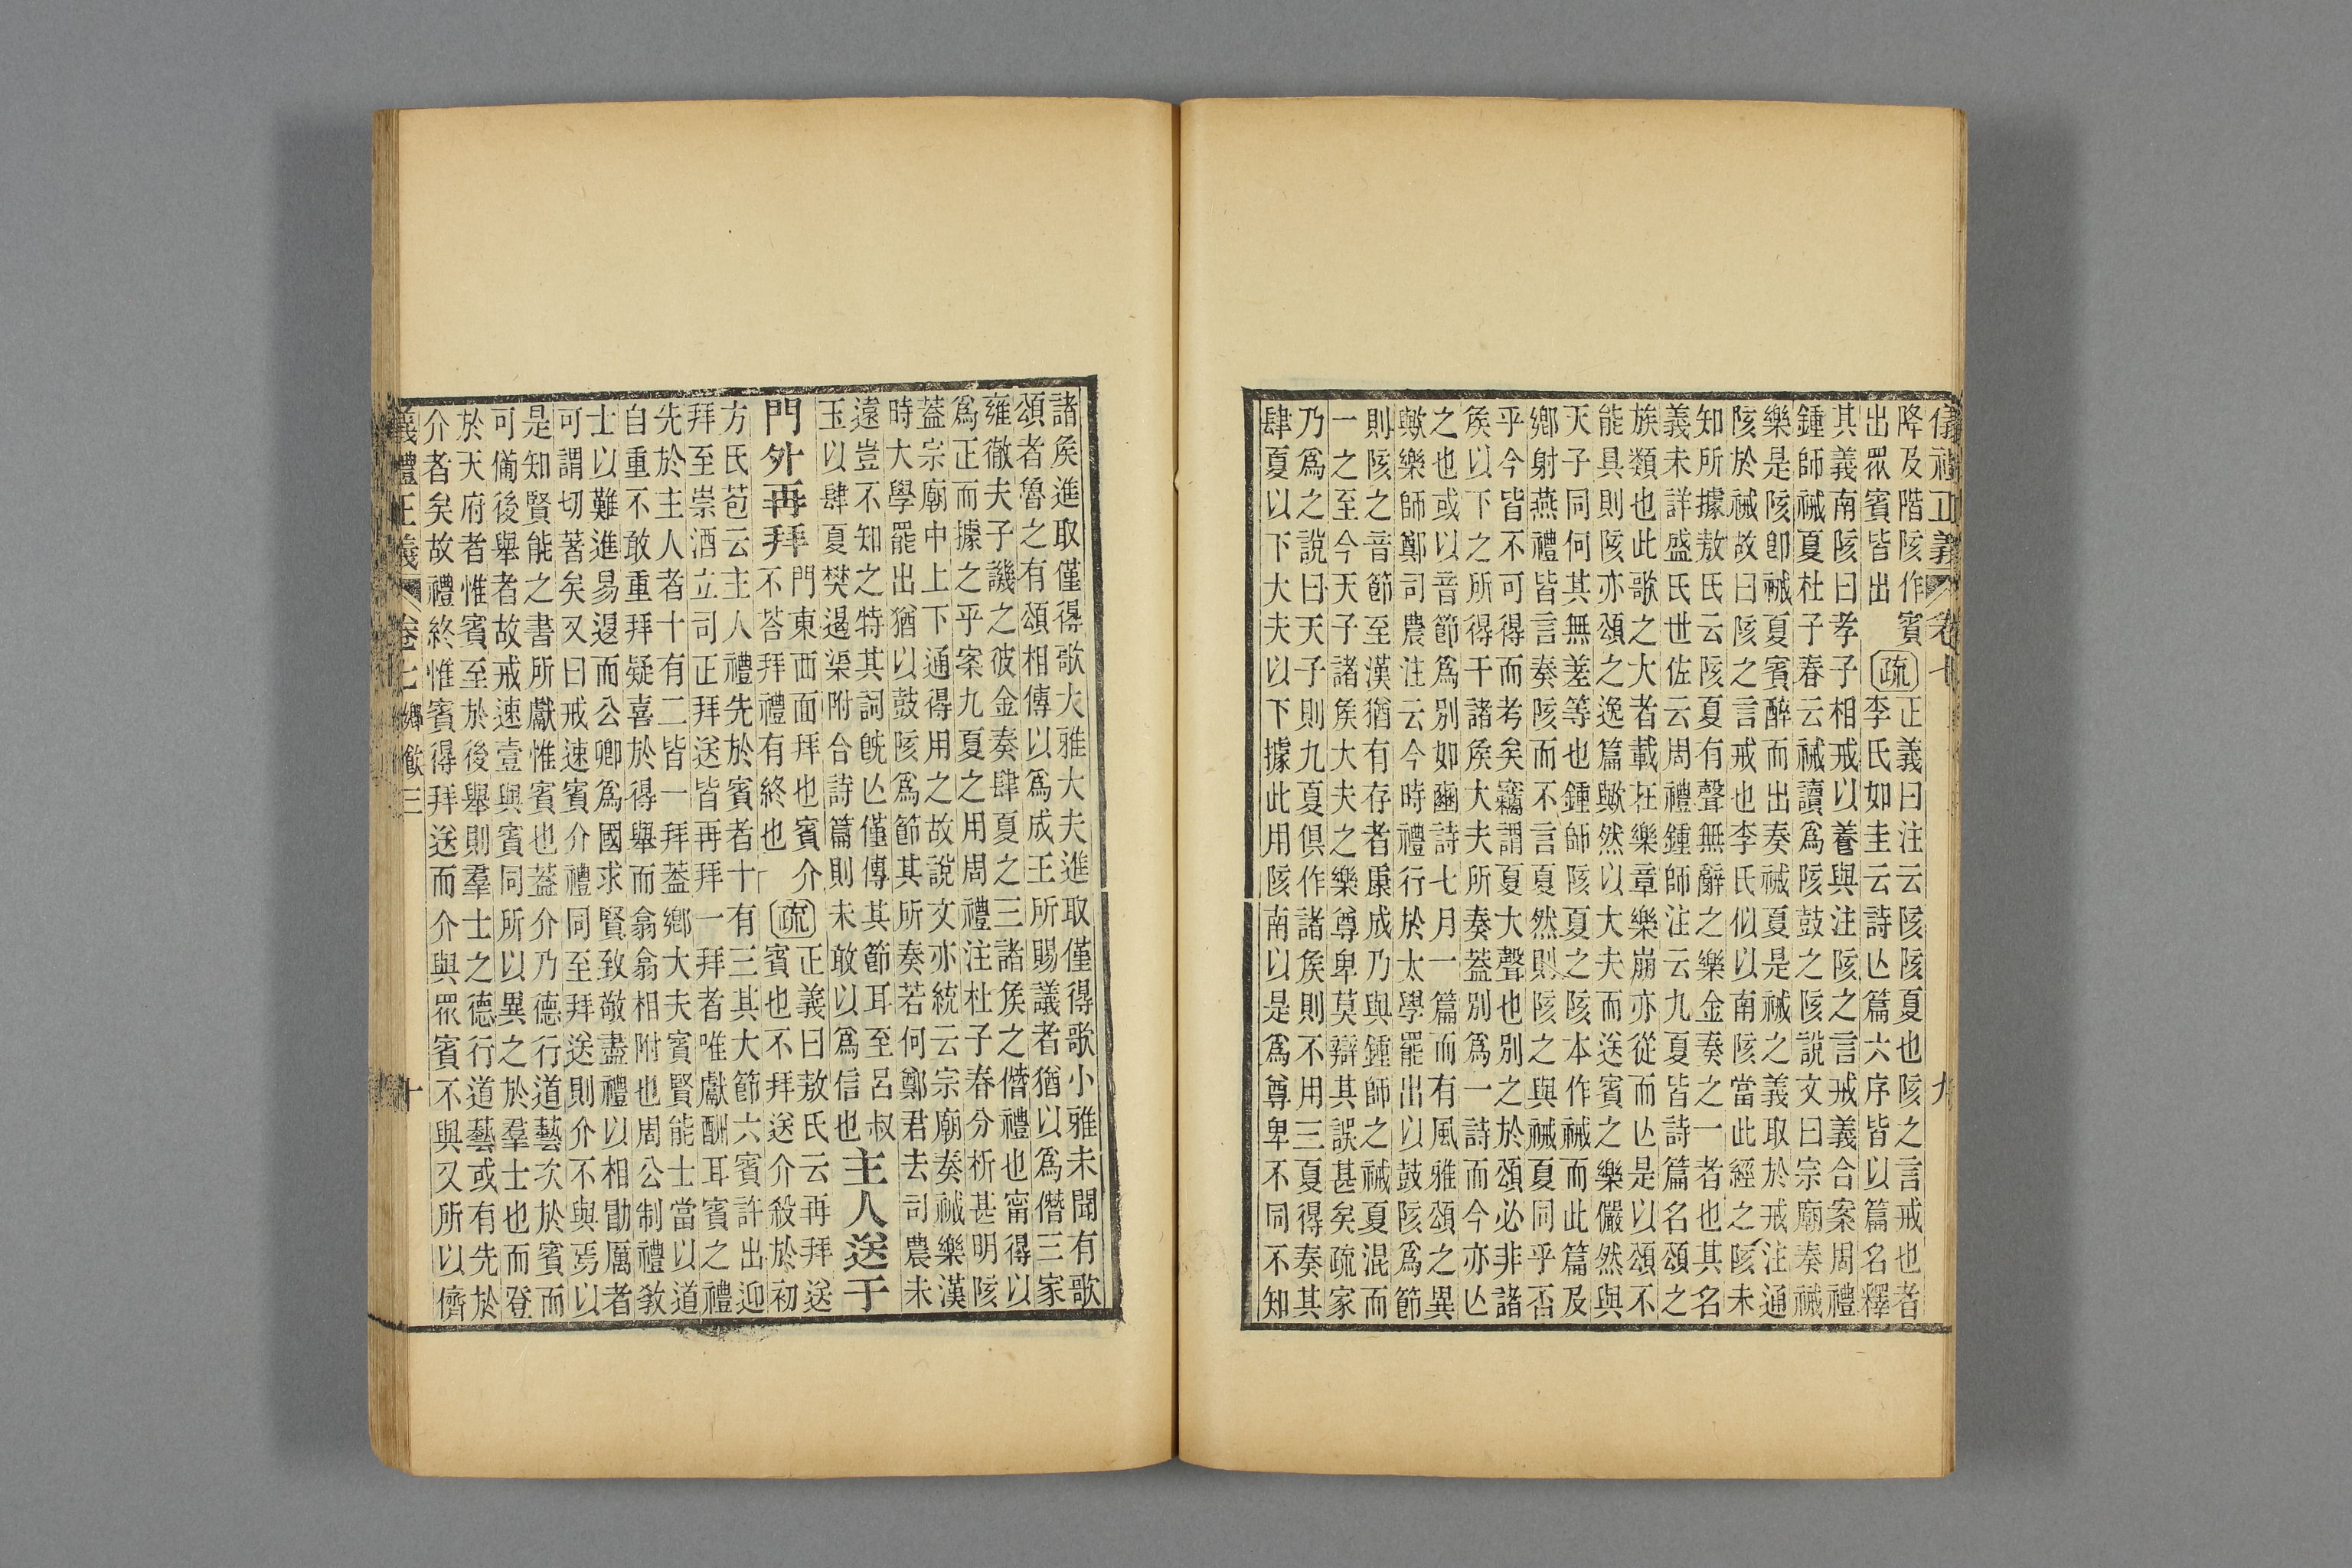 儀禮正義 卷七 九
降及階陔作賓
出眾賓皆出
疏
正義曰注云陔陔夏也陔之言戒也者
李氏如圭云詩亾篇六序皆以篇名釋
其義南陔曰孝子相戒以養與注陔之言戒義合案周禮
鍾師祴夏杜子春云祴讀爲陔鼓之陔說文曰宗廟奏祴
樂是陔卽祴夏賓醉而出奏祴夏是祴之義取於戒注通
陔於祴故曰陔之言戒也李氏似以南陔當此經之陔未
知所據敖氏云陔夏有聲無辭之樂金奏之一者也其名
義未詳盛氏世佐云周禮鍾師注云九夏皆詩篇名頌之
族類也此歌之大者載在樂章樂崩亦從而亾是以頌不
能具則陔亦頌之逸篇歟然以大夫而送賓之樂儼然與
天子同何其無差等也鍾師陔夏之陔本作祴而此篇及
鄉射燕禮皆言奏陔而不言夏然則陔之與祴夏同乎否
乎今皆不可得而考矣竊謂夏大聲也別之於頌必非諸
矦以下之所得干諸矦大夫所奏蓋別爲一詩而今亦亾
之也或以音節爲別如豳詩七月一篇而有風雅頌之異
歟樂師鄭司農注云今時禮行於太學罷出以鼓陔爲節
則陔之音節至漢猶有存者康成乃與鍾師之祴夏混而
一之至今天子諸矦大夫之樂尊卑莫辯其誤甚矣疏家
乃爲之說曰天子則九夏俱作諸矦則不用三夏得奏其
肆夏以下大夫以下據此用陔南以是爲尊卑不同不知
諸矦進取僅得歌大雅大夫進取僅得歌小雅未聞有歌
頌者魯之有頌相傳以爲成王所賜議者猶以爲僭三家
雍徹夫子譏之彼金奏肆夏之三諸矦之僭禮也甯得以
爲正而據之乎案九夏之用周禮注杜子春分析甚明陔
蓋宗廟中上下通得用之故說文亦統云宗廟奏祴樂漢
時大學罷出猶以鼓陔爲節其所奏若何鄭君去司農未
遠豈不知之特其詞旣亾僅傳其節耳至呂叔
玉以肆夏樊遏渠附合詩篇則未敢以爲信也
主人送于
門外再拜
門東西面拜也賓介
不荅拜禮有終也
疏
正義曰敖氏云再拜送
賓也不拜送介殺於初
方氏苞云主人禮先於賓者十有三其大節六賓許出迎
拜至崇酒立司正拜送皆再拜一拜者唯獻酬耳賓之禮
先於主人者十有二皆一拜蓋鄉大夫賓賢能士當以道
自重不敢重拜疑喜於得舉而翕翕相附也周公制禮敎
士以難進易退而公卿爲國求賢致敬盡禮以相勖厲者
可謂切著矣又曰戒速賓介禮同至拜送則介不與焉以
是知賢能之書所獻惟賓也蓋介乃德行道藝次於賓而
可備後舉者故戒速壹與賓同所以異之於羣士也而登
於天府者惟賓至於後舉則羣士之德行道藝或有先於
介者矣故禮終惟賓得拜送而介與眾賓不與又所以儕
義禮正義 卷七鄉飮三 十